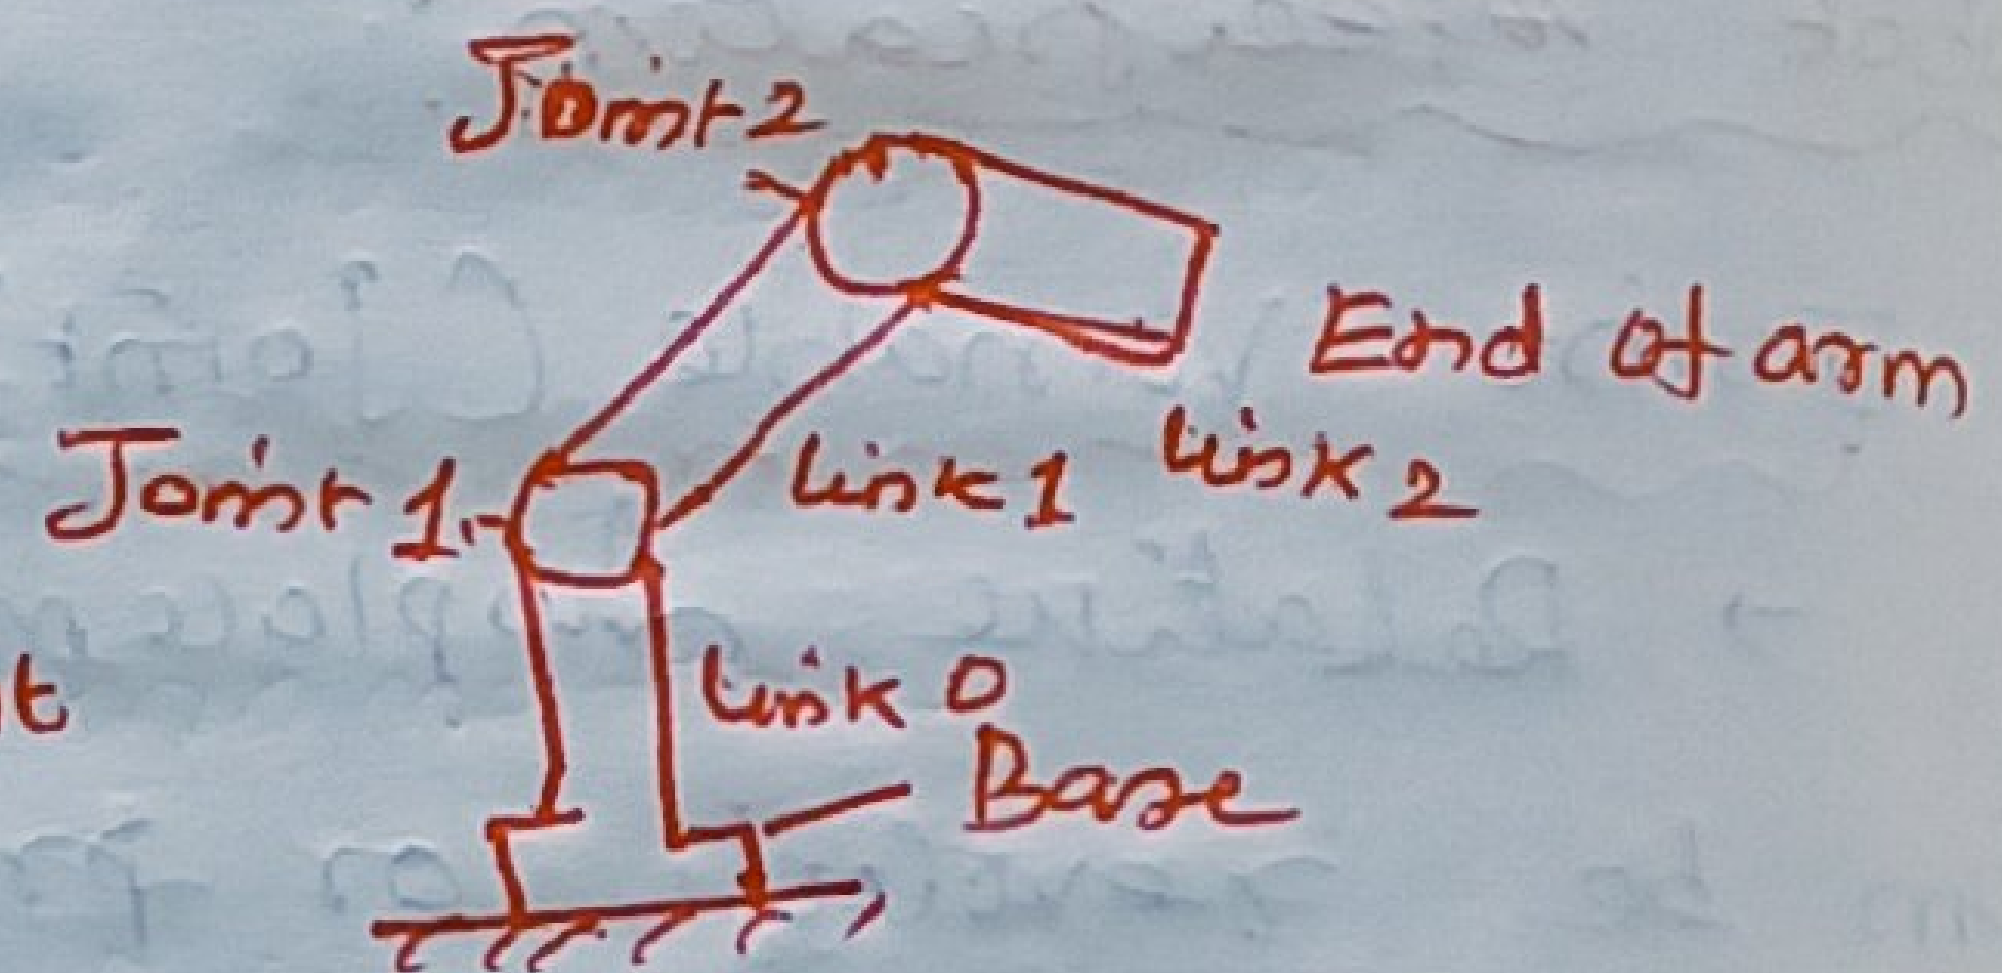 Joint 2
End of arm
Joint 1
link 1
link 2
link 0
Base